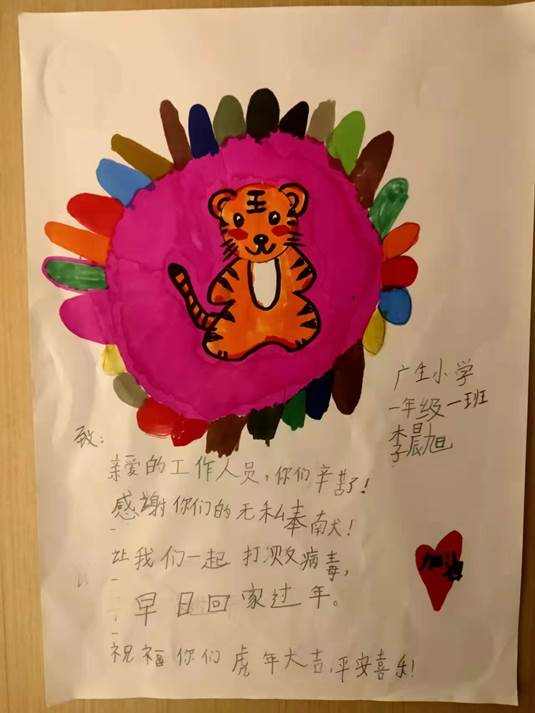 王
广生小学
一年级一班
李晨旭
致:
亲爱的工作人员,你们辛苦了!
感謝你们的无私奉南犬!
让我们一起 打败病毒,
早日回家过年。
祝福你们虎年大吉,平安喜乐!